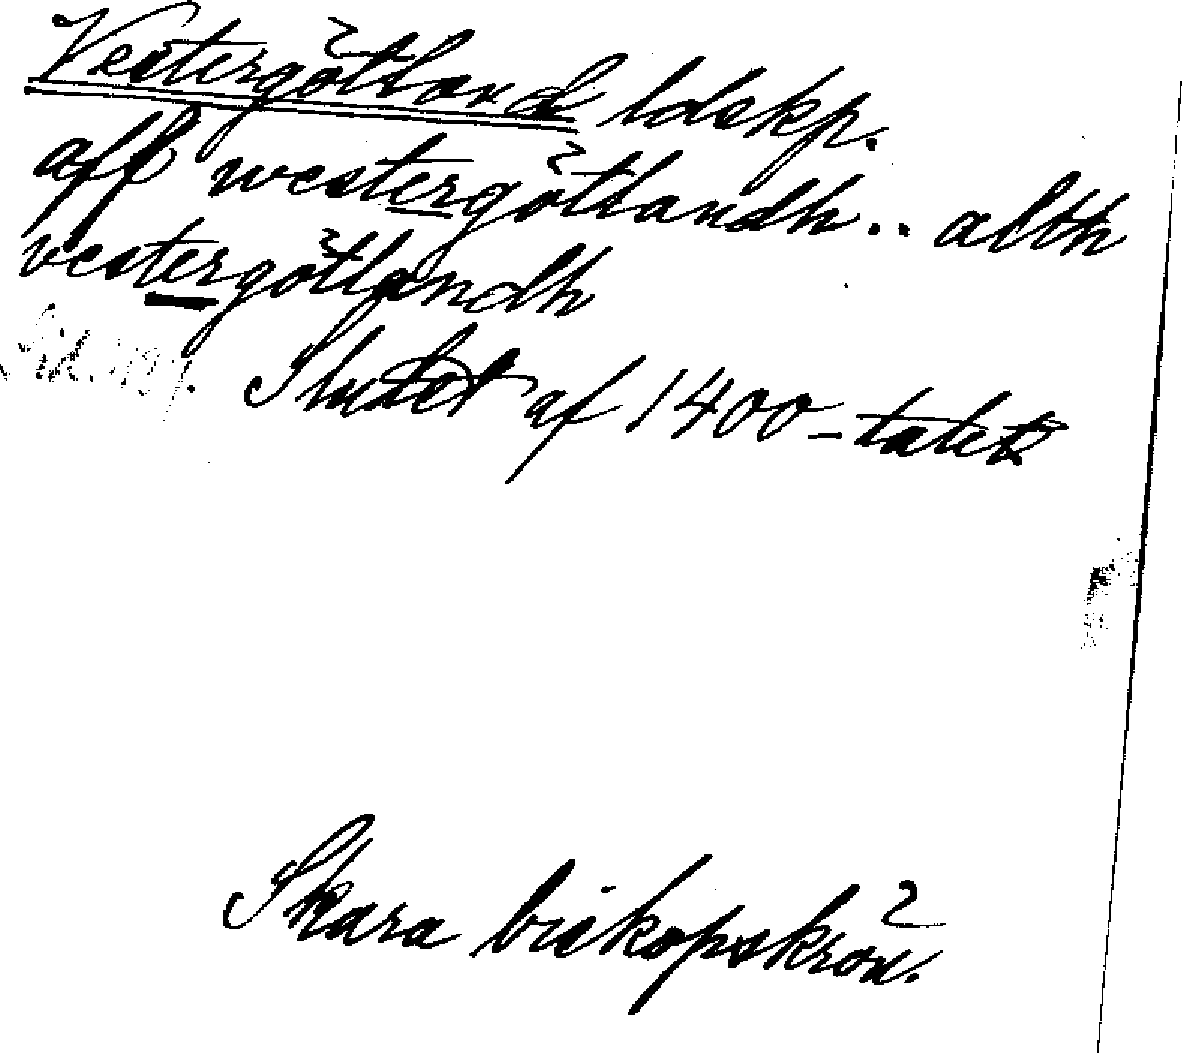 Vestergötland ldskp.
aff westergötlandh .. alth
vestergötlandh
Slutet af 1400-talet
Skara biskopskrön.